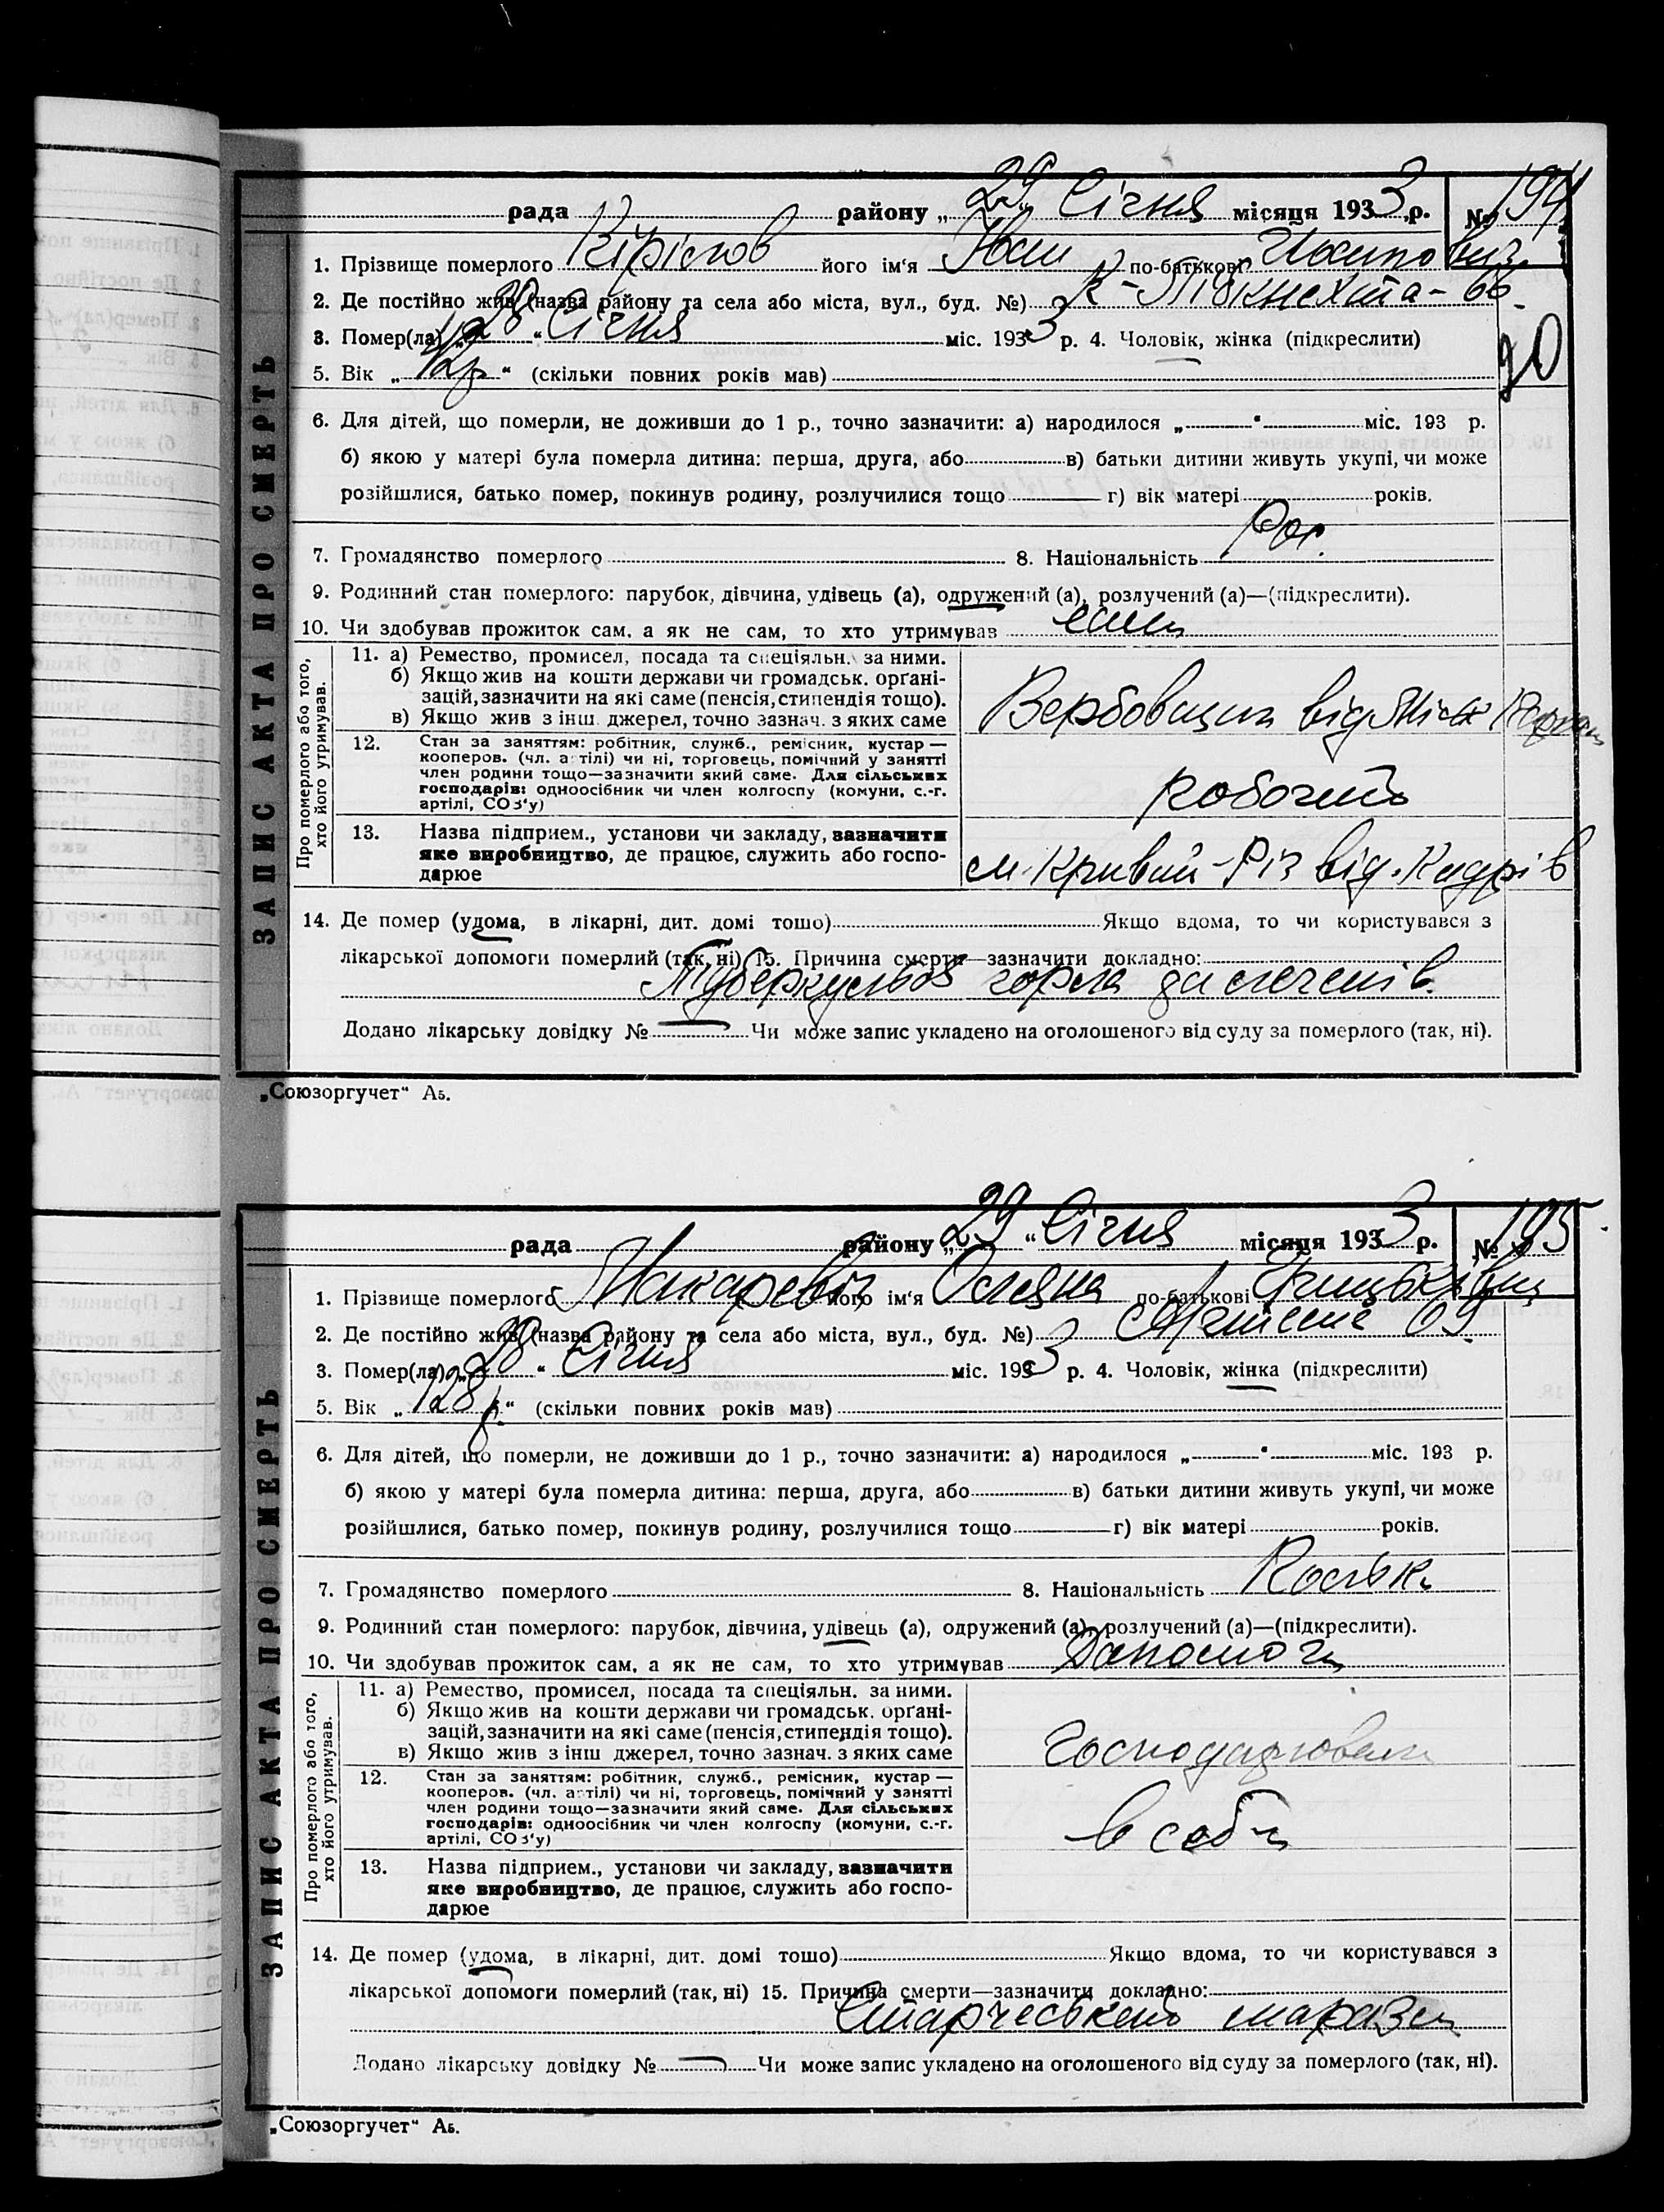 рада района „29“ Січня місяця 1933 р. № 194
1. Прізвище померлого Кірілов його ім‘я Іван по-батькові
2. Де постійно жив (назва району та села або міста, вул., буд. №) К-Лібкнехта-66
3. Помер(ла) „28“ Січня міс. 1933 р. 4. Чоловік, жінка (підкреслити)
5. Вік „42р“ (скільки повних років мав)
90
6. Для дітей, що померли, не доживши до 1 р., точно зазначити: а) народилося „ “ міс. 193 р.
б) якою у матері була померла дитина: перша, друга, або в) батьки дитини живуть укупі, чи може
розійшлися, батько помер, покинув родину, розлучилися тощо г) вік матері років.
7. Громадянство померлого 8. Національність Рос.
9. Родинний стан померлого: парубок, дівчина, удівець (а), одружений (а), розлучений (а)—(підкреслити).
10. Чи здобував прожиток сам, а як не сам, то хто утримував сам
ЗАПИС АКТА ПРО СМЕРТЬ
Про померлого або того, хто його утримував.
11. а) Ремество, промисел, посада та спеціяльн. за ними.
б) Якщо жив на кошти держави чи громадськ. орґані-
зацій, зазначити на які саме (пенсія, стипендія тощо).
в) Якщо жив з інш. джерел, точно зазнач. з яких саме
Вербовщик від
12. Стан за заняттям: робітник, служб., ремісник, кустар —
кооперов. (чл. артілі) чи ні, торговець, помічний у занятті
член родини тощо—зазначити який саме. Для сільських
господарів: одноосібник чи член колгоспу (комуни, с.-г.
артілі, СОЗ‘у)
робочий
13. Назва підприєм., установи чи закладу, зазначити
яке виробництво, де працює, служить або госпо-
дарює
м. Кривий-Ріг від. Кадрів
14. Де помер (удома, в лікарні, дит. домі тощо) Якщо вдома, то чи користувався з
лікарської допомоги померлий (так, ні) 15. Причина смерти—зазначити докладно:
Туберкульоз горла да легенів.
Додано лікарську довідку № Чи може запис укладено на оголошеного від суду за померлого (так, ні).
„Союзоргучет“ А5.
рада району „29“ Січня місяця 1933 р. № 195
1. Прізвище померлого Макаревіч його ім‘я по-батькові
2. Де постійно жив (назва району та села або міста, вул., буд. №) 69
3. Помер(ла) „28“ Січня міс. 1933 р. 4. Чоловік, жінка (підкреслити)
5. Вік „128 р.“ (скільки повних років мав)
6. Для дітей, що померли, не доживши до 1 р., точно зазначити: а) народилося „ “ міс. 193 р.
б) якою у матері була померла дитина: перша, друга, або в) батьки дитини живуть укупі, чи може
розійшлися, батько помер, покинув родину, розлучилися тощо г) вік матері років.
7. Громадянство померлого 8. Національність
9. Родинний стан померлого: парубок, дівчина, удівець (а), одружений (а), розлучений (а)—(підкреслити).
10. Чи здобував прожиток сам, а як не сам, то хто утримував Допомоги
ЗАПИС АКТА ПРО СМЕРТЬ
Про померлого або того, хто його утримував.
11. а) Ремество, промисел, посада та спеціяльн. за ними.
б) Якщо жив на кошти держави чи громадськ. орґані-
зацій, зазначити на які саме (пенсія, стипендія тощо).
в) Якщо жив з інш джерел, точно зазнач. з яких саме
12. Стан за заняттям: робітник, служб., ремісник, кустар —
кооперов. (чл. артілі) чи ні, торговець, помічний у занятті
член родини тощо—зазначити який саме. Для сільських
господарів: одноосібник чи член колгоспу (комуни, с.-г.
артілі, СОЗ‘у)
13. Назва підприєм., установи чи закладу, зазначити
яке виробництво, де працює, служить або госпо-
дарює
14. Де помер (удома, в лікарні, дит. домі тощо) Якщо вдома, то чи користувався з
лікарської допомоги померлий (так, ні) 15. Причина смерти—зазначити докладно:
Старческий маразм
Додано лікарську довідку № Чи може запис укладено на оголошеного від суду за померлого (так, ні).
„Союзоргучет“ А5.